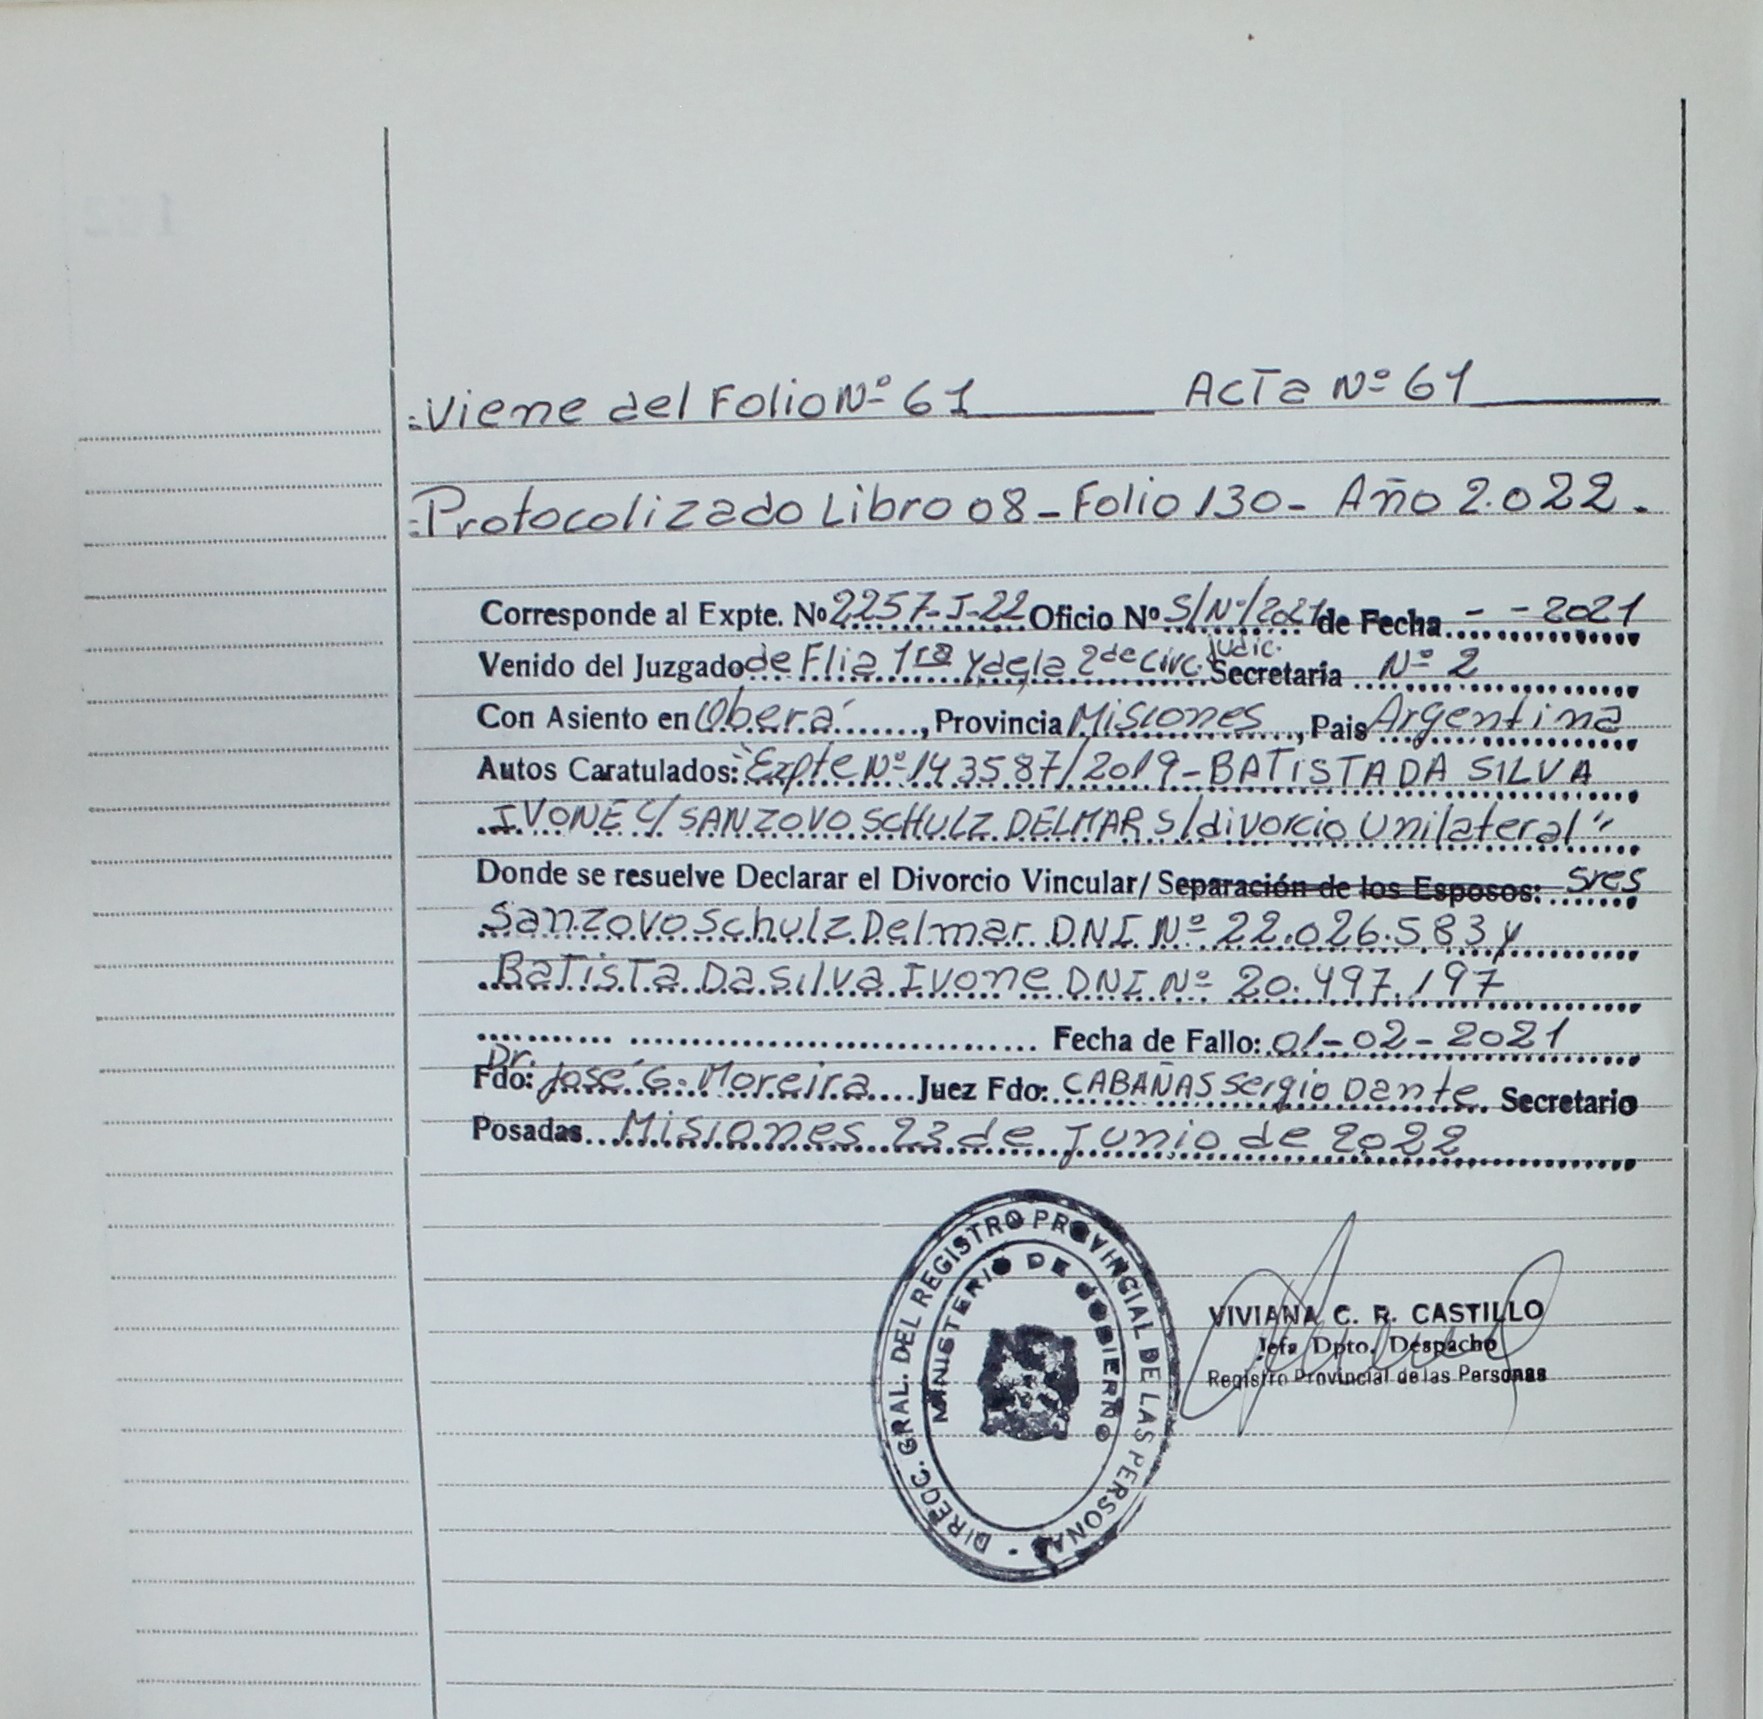 :Viene del Folio Nº 61 Acta Nº 61
:Protocolizado Libro 08 - Folio 130 - Año 2.022.
Corresponde al Expte. Nº 2257-I-22 Oficio Nº S/Nº/2021 de Fecha - - 2021
Venido del Juzgado de Flia 1ra y de la 2da Circ. Judic. Secretaria Nº 2
Con Asiento en Oberá, Provincia Misiones, Pais Argentina
Autos Caratulados: "Expte Nº 143587/2019 - BATISTA DA SILVA
IVONE C/ SANZOVO SCHULZ DELMAR S/divorcio Unilateral"
Donde se resuelve Declarar el Divorcio Vincular/ Separación de los Esposos: Sres
Sanzovo Schulz Delmar DNI Nº 22.026.583 y
Batista Da Silva Ivone DNI Nº 20.497.197
Fecha de Fallo: 01-02-2021
Fdo: Dr. José G. Moreira Juez Fdo: CABAÑAS Sergio Dante Secretario
Posadas Misiones 23 de Junio de 2022
DIRECC. GRAL. DEL REGISTRO PROVINCIAL DE LAS PERSONAS
MINISTERIO DE GOBIERNO
VIVIANA C. R. CASTILLO
Jefa Dpto. Despacho
Registro Provincial de las Personas